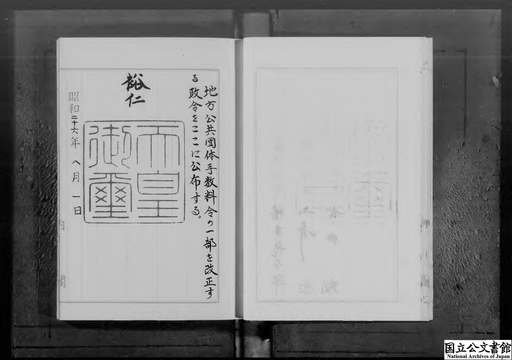 地方公共団体手数料令の一部を改正す
る政令をここに公布する。
裕仁
天皇
御璽
昭和二十六年 八月 一日
内閣
国立公文書館
National Archives of Japan